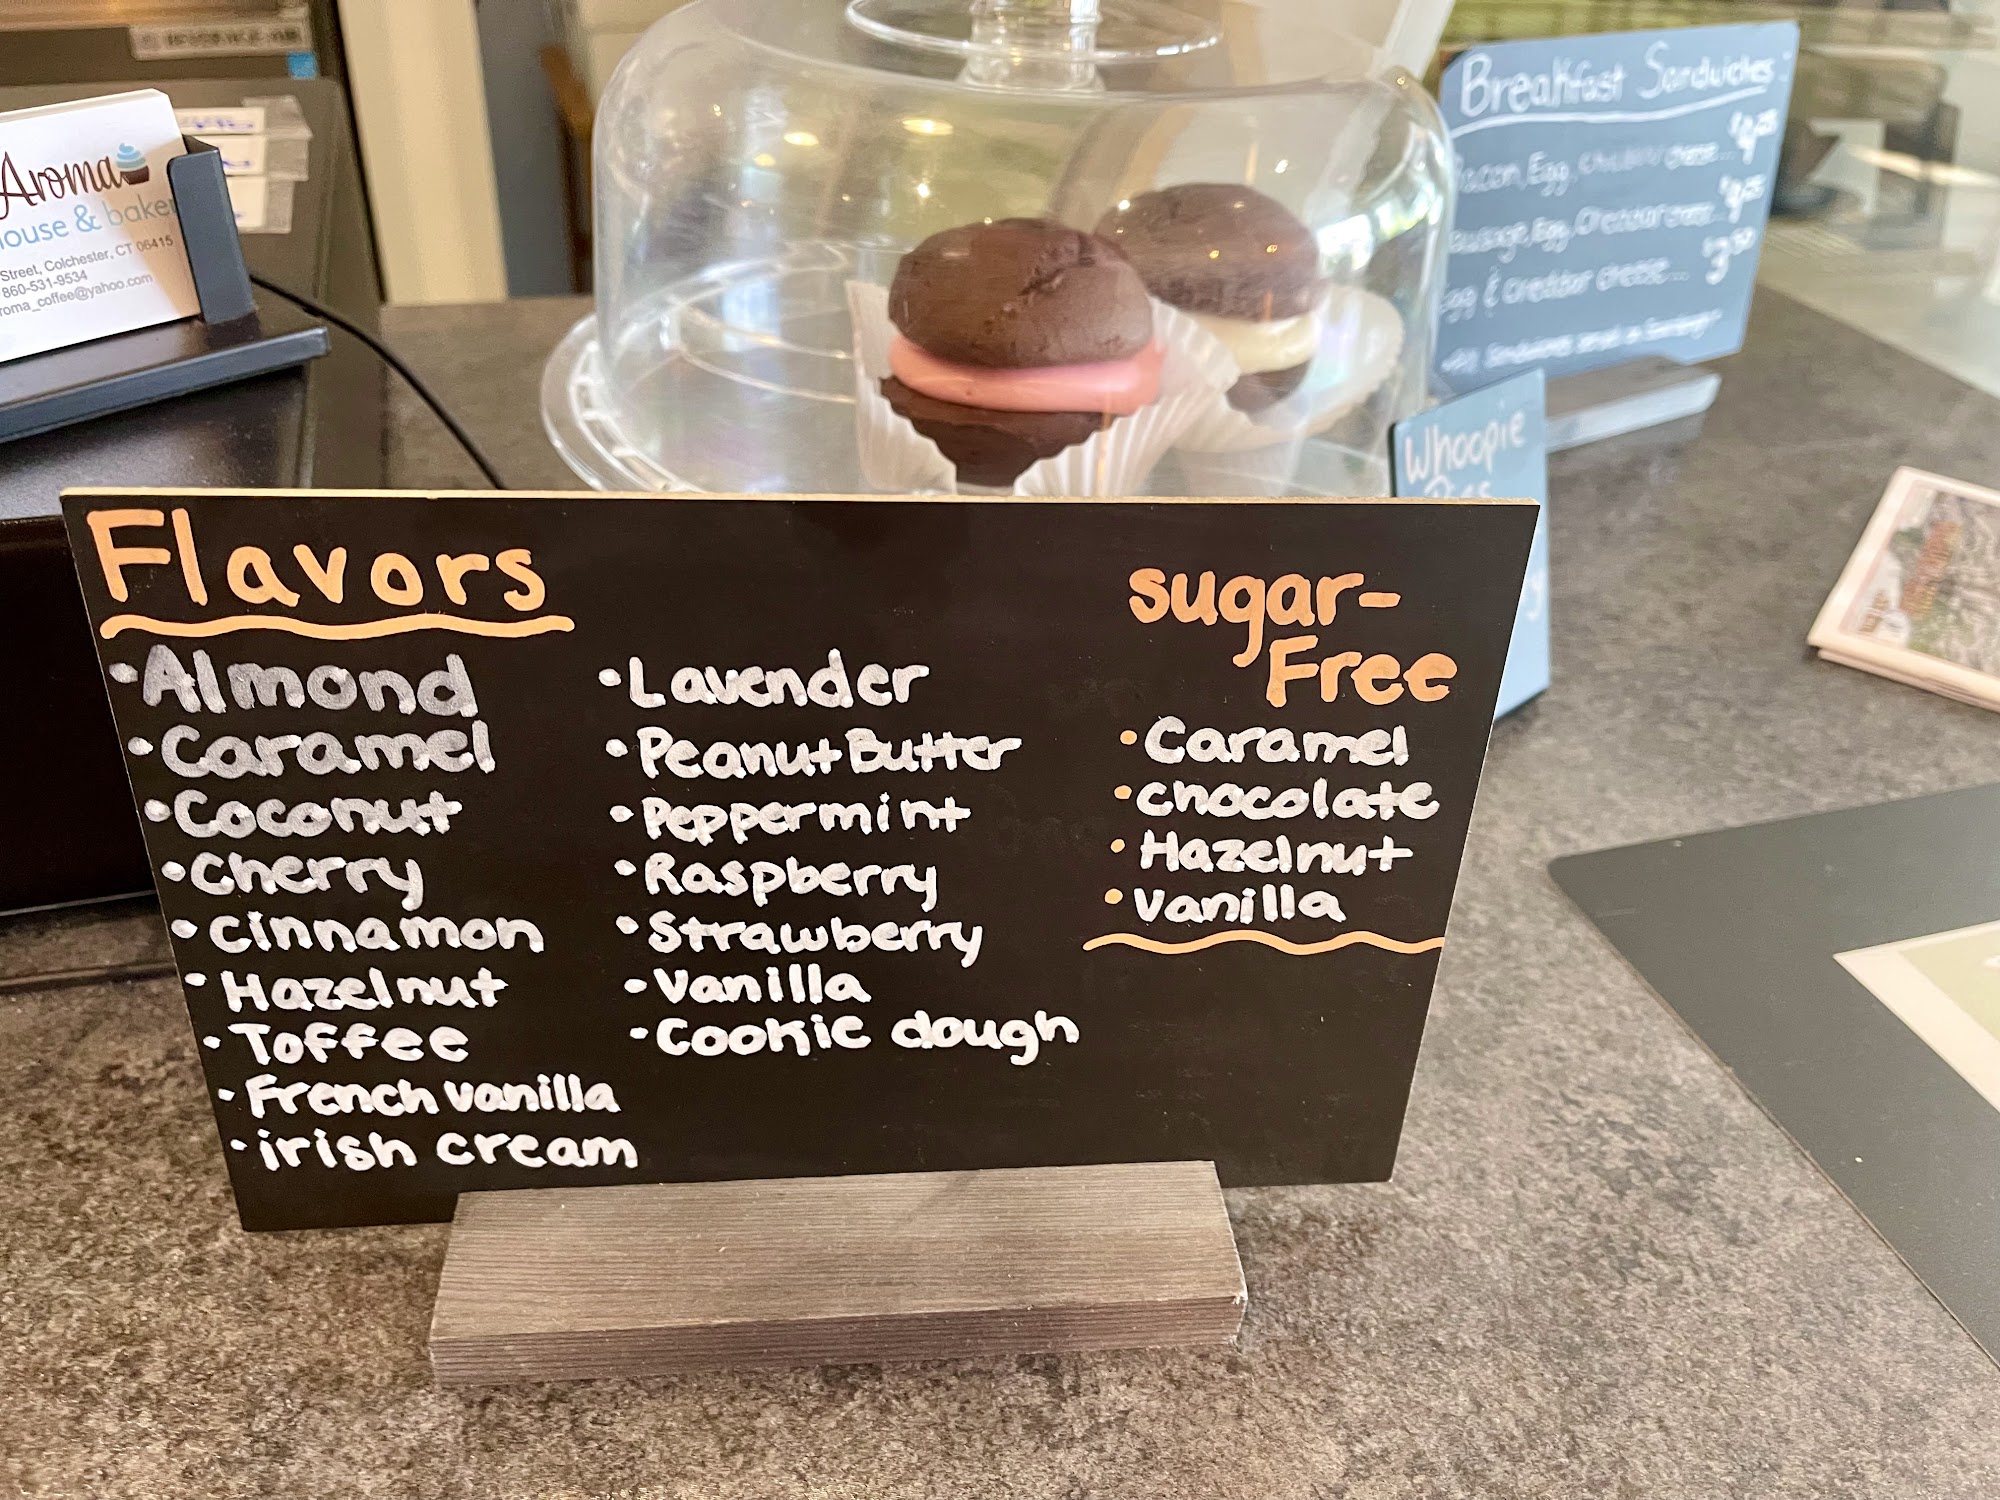 Aroma
house & baker
Street, Colchester, CT 06415
860-531-9534
roma_coffee@yahoo.com
Breakfast Sandwiches
Bacon, Egg, Cheddar cheese...
Sausage, Egg, Cheddar cheese...
Egg & Cheddar cheese... $3.50
Whoopie
Pies
Flavors
• Almond
• Caramel
• Coconut
• Cherry
• Cinnamon
• Hazelnut
• Toffee
• French vanilla
• irish cream
• Lavender
• Peanut Butter
• Peppermint
• Raspberry
• Strawberry
• Vanilla
• Cookie dough
sugar-
Free
• Caramel
• chocolate
• Hazelnut
• Vanilla